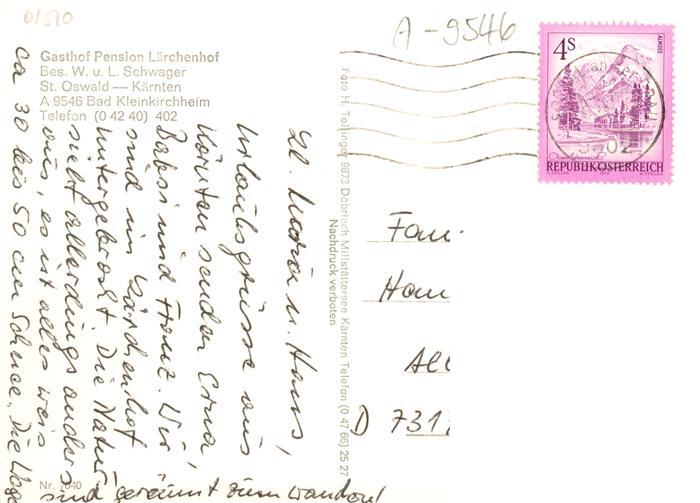 01570
A-9546
Gasthof Pension Lärchenhof
Bes. W. u. L. Schwager
St. Oswald — Kärnten
A 9546 Bad Kleinkirchheim
Telefon (0 42 40) 402
Gl. Maria u. Hans,
Urlaubsgrüsse aus
Kärnten senden Erna
Babsi und Franz. Wir
sind im Lärchenhof
untergebracht. Die Natur
sieht allerdings anders
aus, es ist alles weis
ca 30 bis 50 cm Schnee. Die Wege
sind geräumt zum wandern!
Nr. 7040
Foto H. Tollinger 9873 Döbriach Millstättersee Kärnten Telefon (0 47 66) 25 27
Nachdruck verboten
4S
ALMSEE
REPUBLIK ÖSTERREICH
Fam.
Han
All
D 731